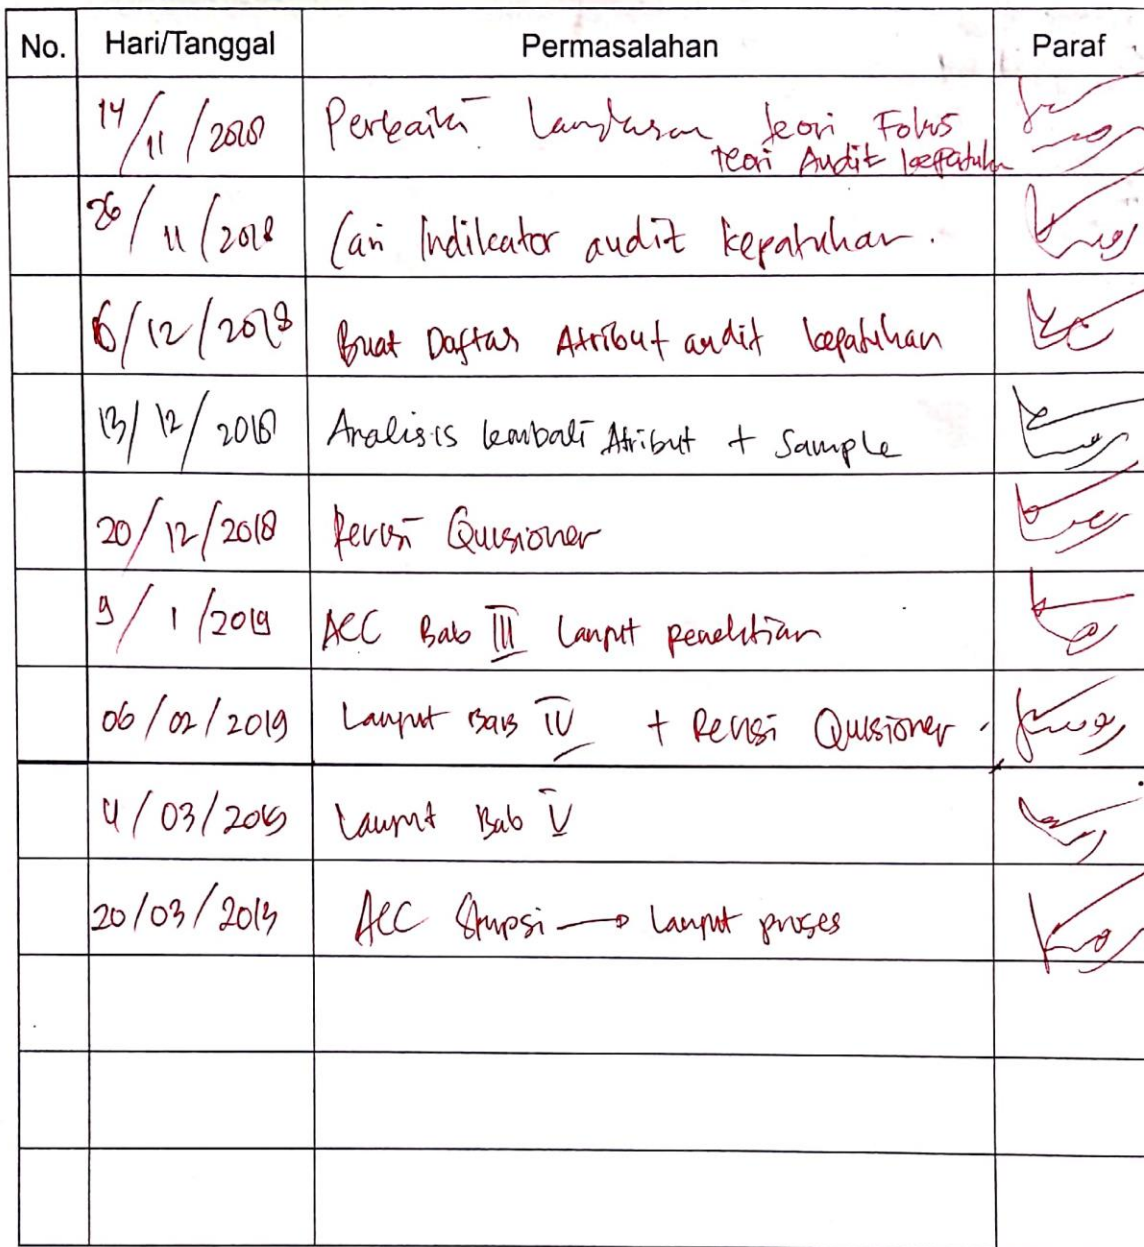 No. Hari/Tanggal Permasalahan Paraf
14/11/2018 Perbaiki Landasan teori Fokus
teori Audit kepatuhan
26/11/2018 Cari Indikator audit kepatuhan.
6/12/2018 Buat Daftar Atribut audit kepatuhan
13/12/2018 Analisis kembali Atribut + Sample
20/12/2018 Revisi Quisioner
9/1/2019 ACC Bab III Lanjut penelitian
06/02/2019 Lanjut Bab IV + Revisi Quisioner
4/03/2019 Lanjut Bab V
20/03/2019 ACC Skripsi → Lanjut proses